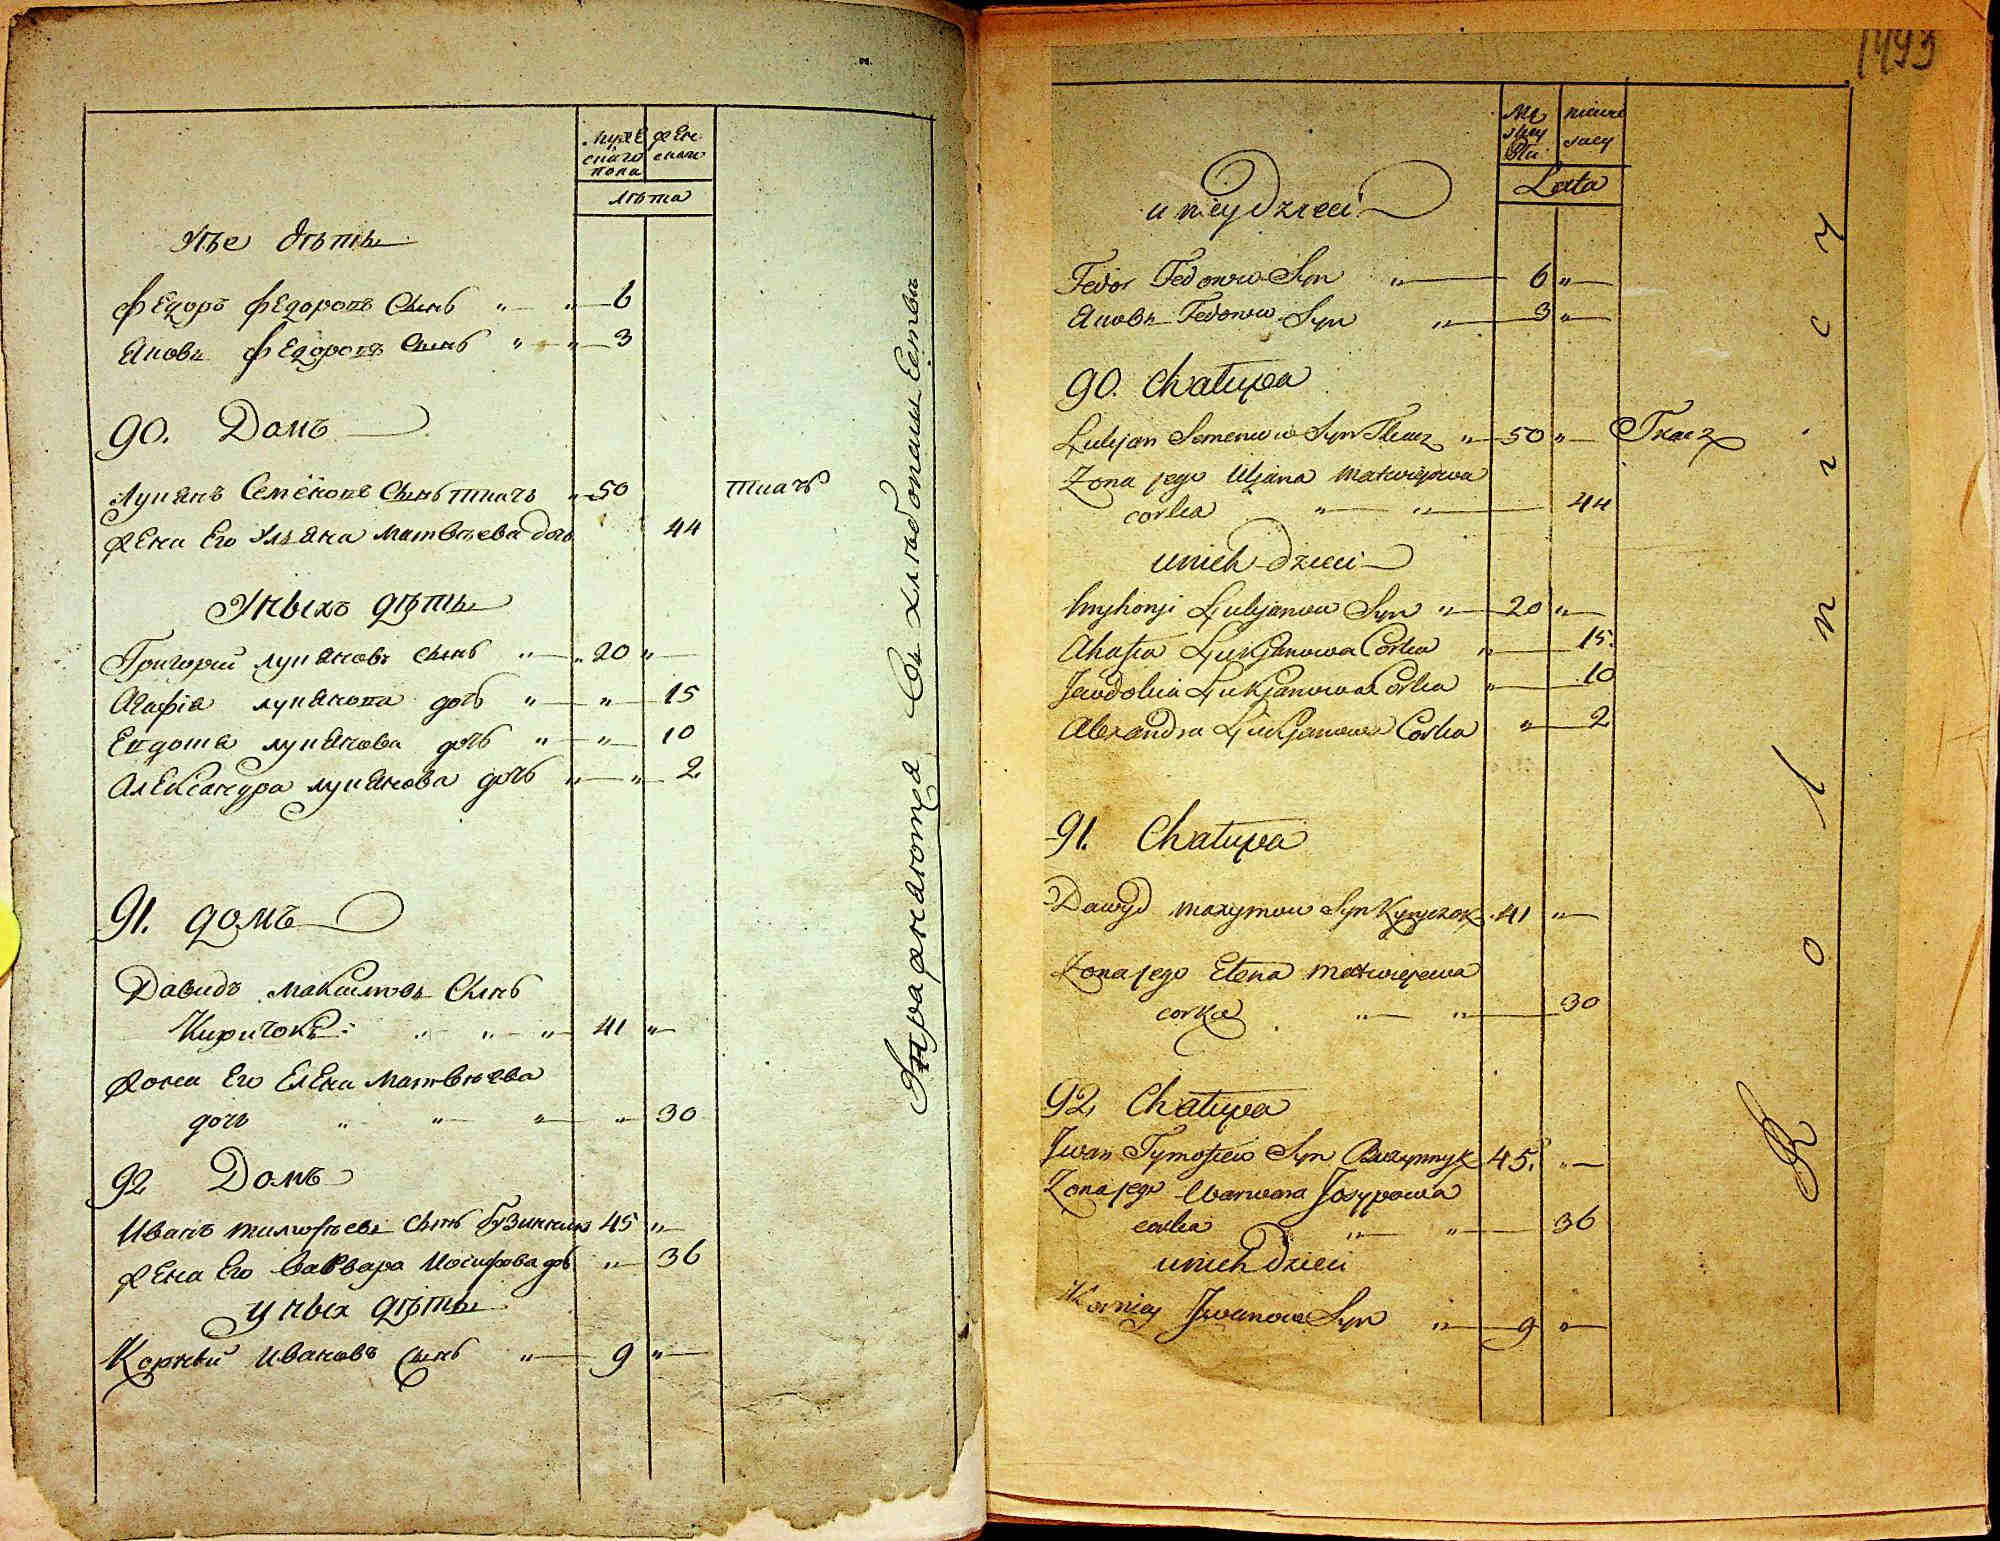 мужескаго пола
женскаго
лѣта
Унѣе дѣтѣ
Федоръ Федоровъ сынъ 6
Яковъ Федоровъ сынъ 3
90. Домъ
Лукянъ Семёновъ сынъ ткачъ 50 ткачъ
Жена Его Ульяна Матвѣева дочь 44
Уныхъ дѣтѣ
Григорий Лукяновъ сынъ 20
Агафія Лукянова дочь 15
Евдотя Лукянова дочь 10
Александра Лукянова дочь 2
91. домъ
Давидъ Максимовъ сынъ
Киричокъ 41
Жона Его Елена Матвѣева
дочь 30
92 Домъ
Иванъ Тимофѣевъ сынъ Бузинникъ 45
Жена Его Варвара Иосифова дочь 36
у ныхъ дѣтѣ
Корнѣй Ивановъ сынъ 9
Упражняются въ хлѣбопашествѣ
1493
Lata
u niey Dzieci
Fedor Fedorow Syn 6
Яковъ Fedorow Syn 3
90. Chatupa
Lukjan Semenow Syn Tkacz 50 Tkacz
Zona jego Uljana Matwiejowa
corka 44
unich dzieci
Hryhorji Lukjanow Syn 20
Ahafia Lukjanowa Corka 15
Jewdokia Lukjanowa Corka 10
Alexandra Lukjanowa Corka 2
91. Chatupa
Dawyd Maxymow Syn Kyryczok 41
Zona jego Elena Matwiejewa
corka 30
92 Chatupa
Jwan Tymofiew Syn Buzynnyk 45
Zona jego Warwara Josypowa
corka 36
unich Dzieci
Korniey Jwanow Syn 9